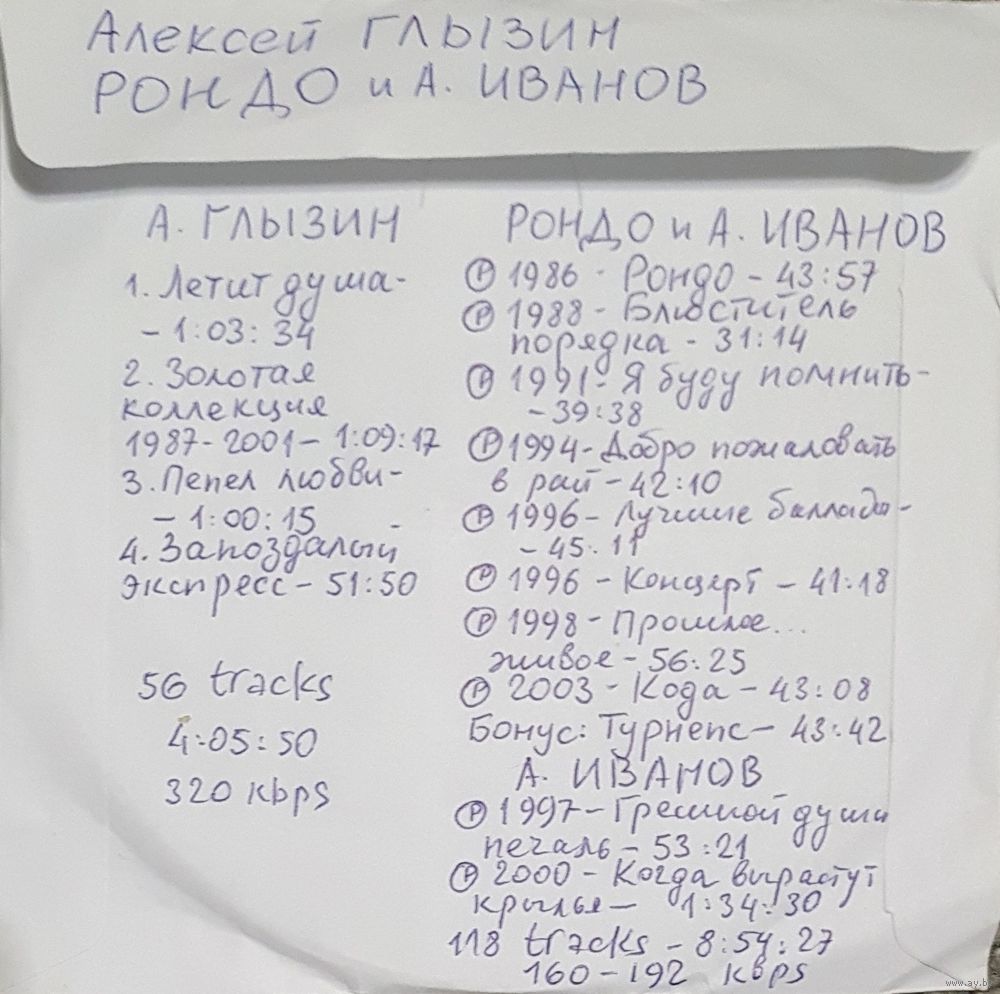 Алексей ГЛЫЗИН
РОНДО и А. ИВАНОВ
А. ГЛЫЗИН
1. Летит душа-
- 1:03:34
2. Золотая
коллекция
1987-2001- 1:09:17
3. Пепел любви-
- 1:00:15
4. Запоздалый
экспресс- 51:50
56 tracks
4:05:50
320 kbps
РОНДО и А. ИВАНОВ
Ⓟ 1986 - Рондо - 43:57
Ⓟ 1988 - Блюститель
порядка - 31:14
Ⓟ 1991- Я буду помнить-
-39:38
Ⓟ 1994-Добро пожаловать
в рай-42:10
Ⓟ 1996- Лучшие баллады-
- 45:11
Ⓟ 1996 - Концерт - 41:18
Ⓟ 1998-Прошлое...
живое-56:25
Ⓟ 2003-Кода-43:08
Бонус: Турнепс- 43:42
А. ИВАНОВ
Ⓟ 1997-Грешной души
печаль-53:21
Ⓟ 2000-Когда вырастут
крылья- 1:34:30
118 tracks - 8:54:27
160-192 kbps
www.ay.b